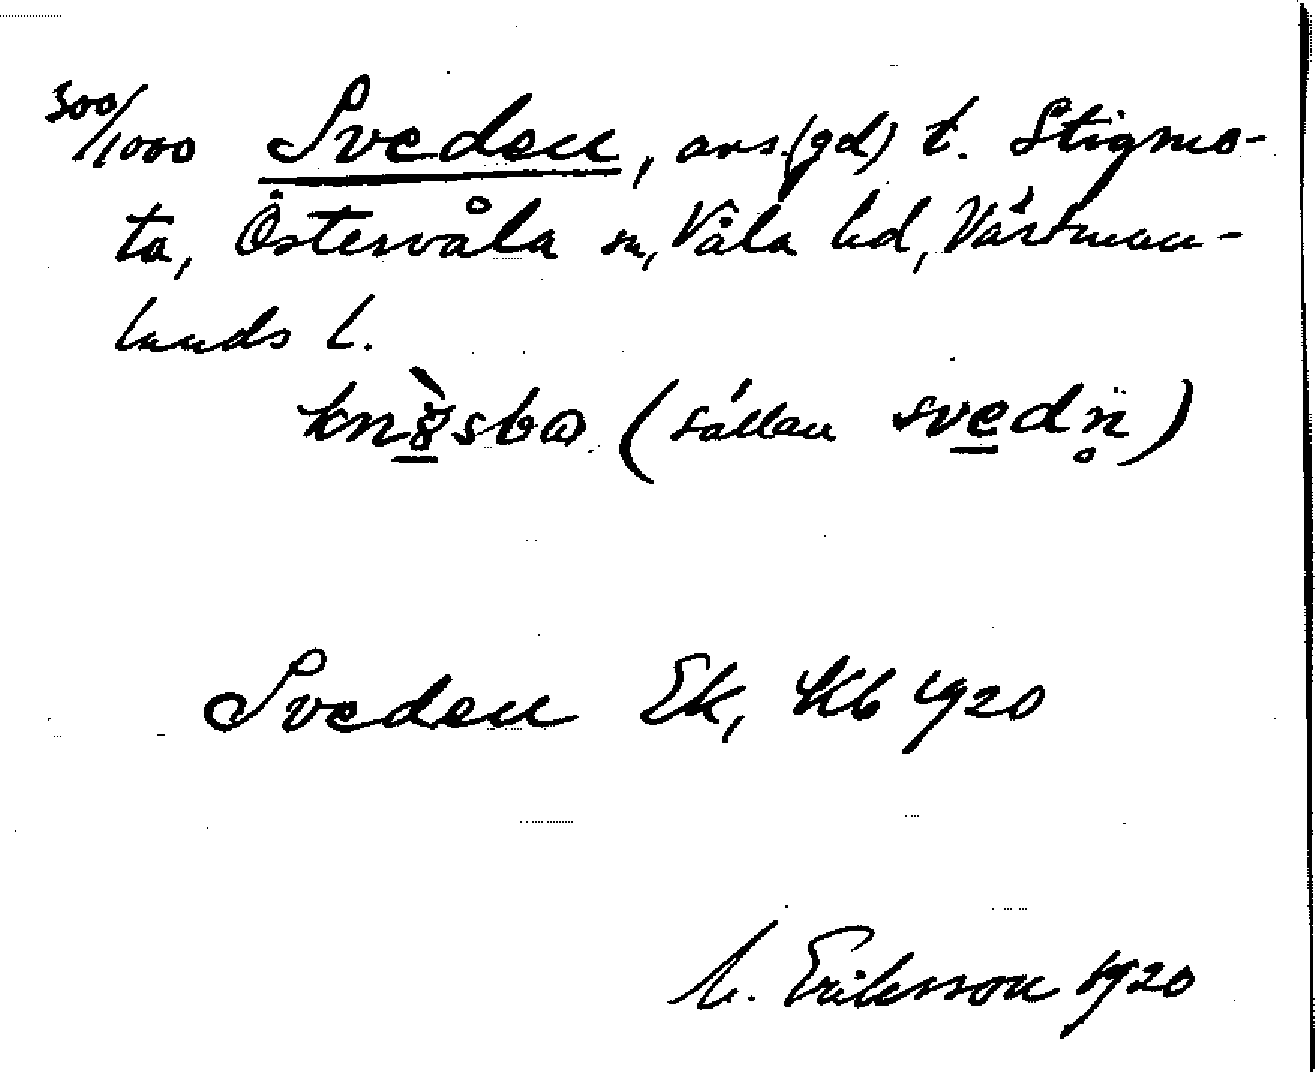 300/1000 Sveden, avs.(gd) t. Stigmo-
ta, Östervåla sn, Våla hd, Västman-
lands l.
(sällan svedn̥)
Sveden Ek, Kb 1920
M. Eriksson 1920